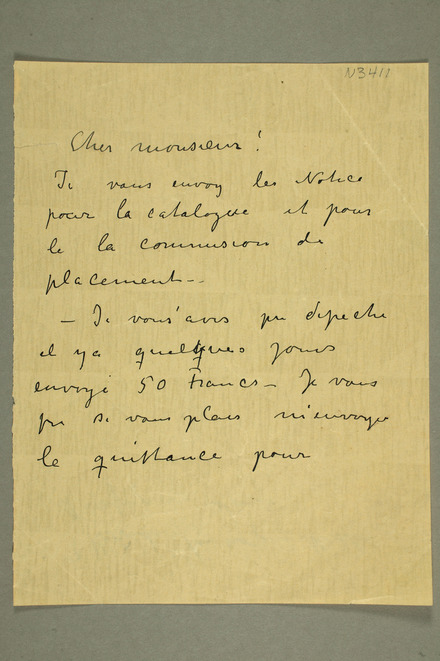 N3411
Cher monsieur!
Je vous envoy les Notice
pour la catalogue et pour
le la commision de
placement--
— Je vous avis par depeche
il ya quelques jours
envoyé 50 Francs— Je vous
pri si vous plais m'envoye
le quittance pour